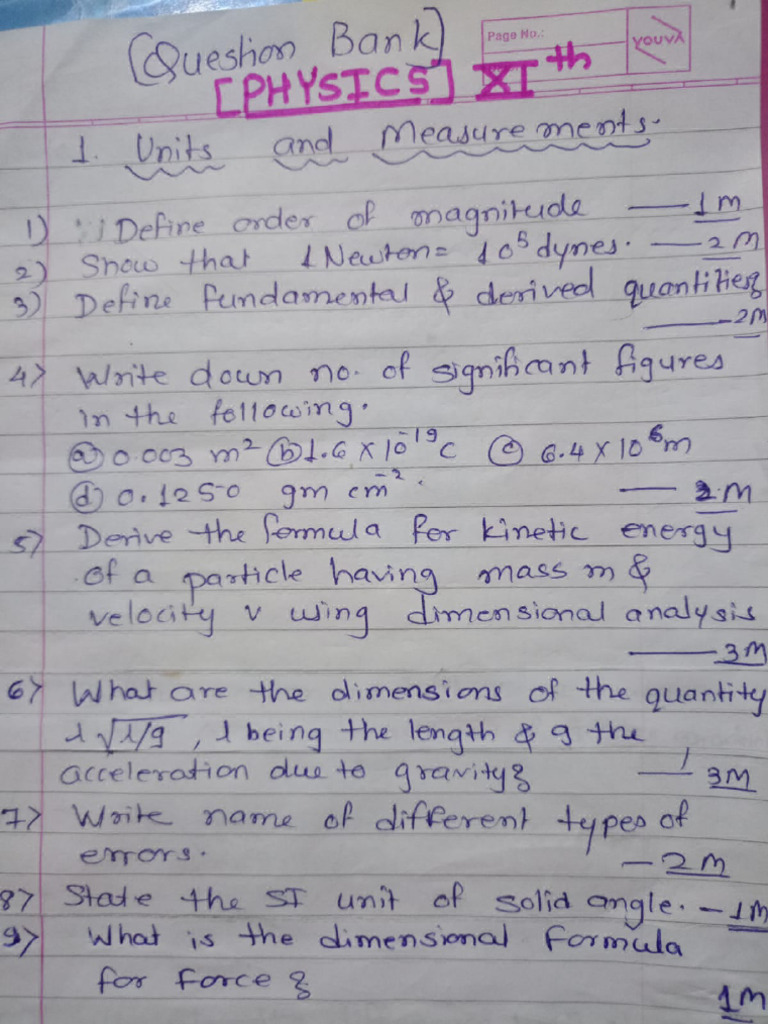 [Question Bank]
Page No.:
YOUVA
[PHYSICS] XIth
1. Units and Measurements.
1) Define order of magnitude — 1M
2) Show that 1 Newton = 10⁵ dynes. — 2M
3) Define fundamental & derived quantities
— 2M
4) Write down no. of significant figures
in the following.
(a) 0.003 m² (b) 1.6 X 10⁻¹⁹ C (c) 6.4 X 10⁶ m
(d) 0.1250 gm cm⁻². — 2M
5) Derive the formula for kinetic energy
of a particle having mass m &
velocity v using dimensional analysis
— 3M
6) What are the dimensions of the quantity
l √l/g, l being the length & g the
acceleration due to gravity? — 3M
7) Write name of different types of
errors. — 2M
8) State the SI unit of solid angle. — 1M
9) What is the dimensional formula
for force?
1M